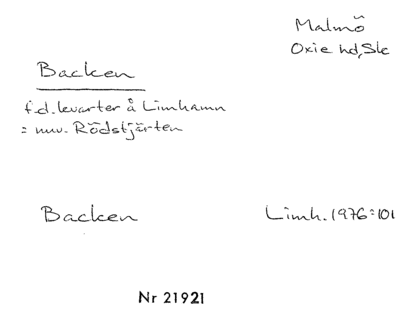 Malmö
Oxie hd, Sk
Backen
f.d. kvarter å Limhamn
= nuv. Rödstjärten
Backen Limh. 1976:101
Nr 21921